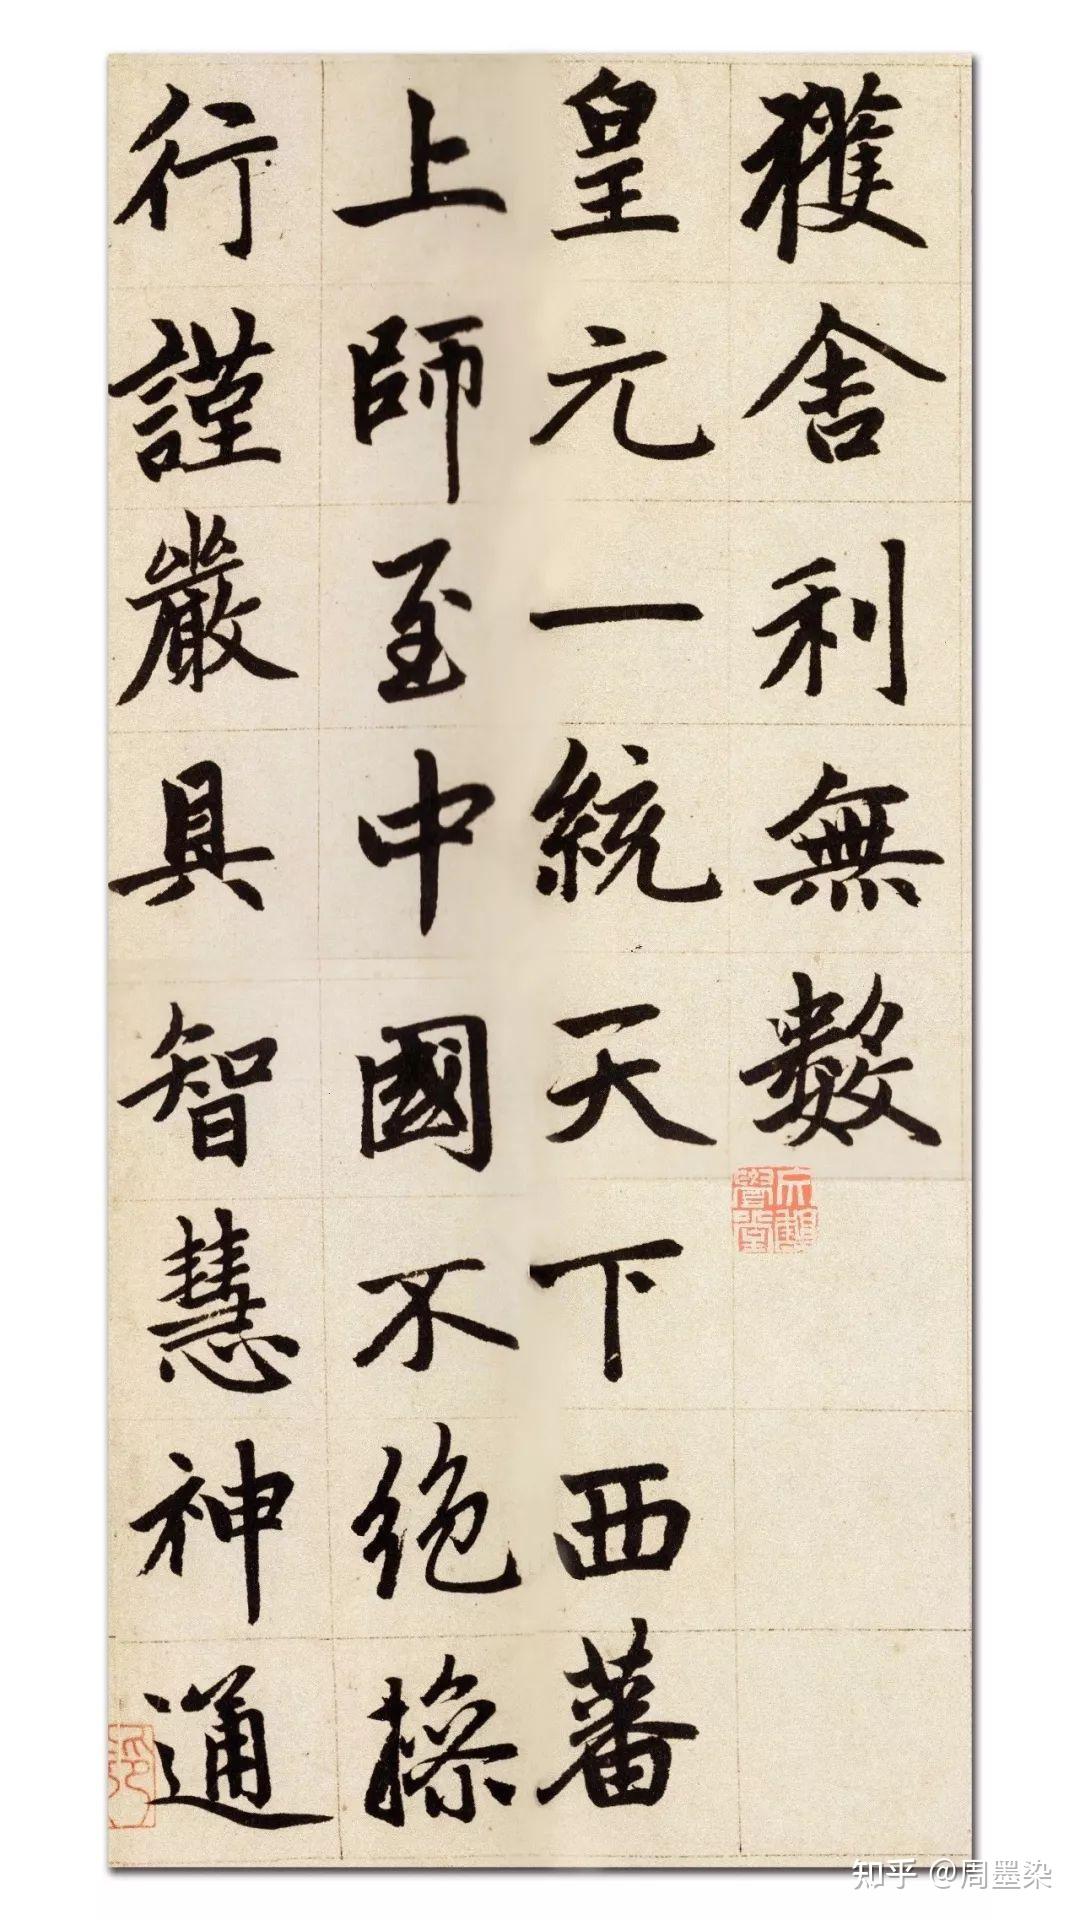 獲舍利無數
皇元一統天下西蕃
上師至中國不絕操
行謹嚴具智慧神通
知乎 @周墨染